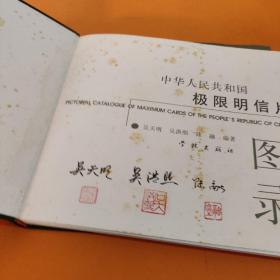 中华人民共和国
极限明信片
PICTORIAL CATALOGUE OF MAXIMUM CARDS OF THE PEOPLE'S REPUBLIC OF C
图录
吴天明 吴洪熙 编著
学林出版社
吴天明 吴洪熙